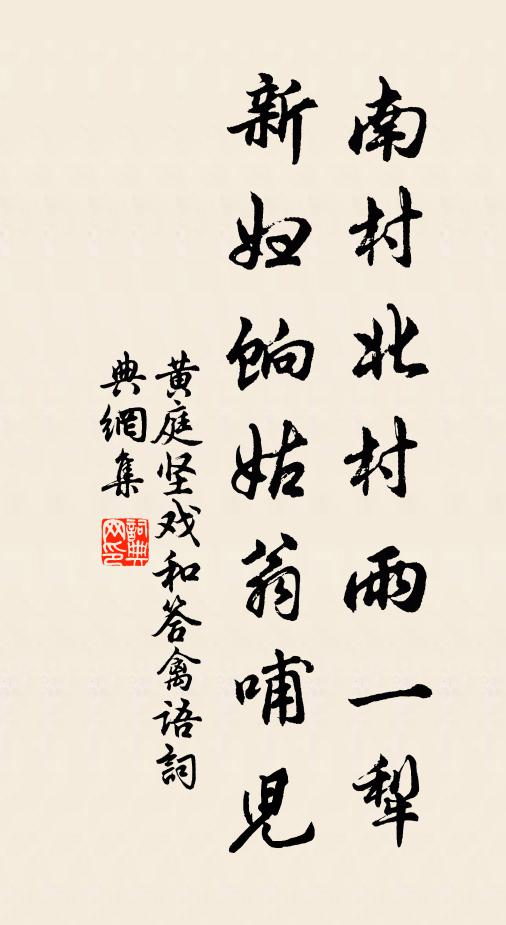 南村北村雨一犁
新妇餉姑翁哺児
黄庭坚戏和答禽语詞
典網集
詞典
网印